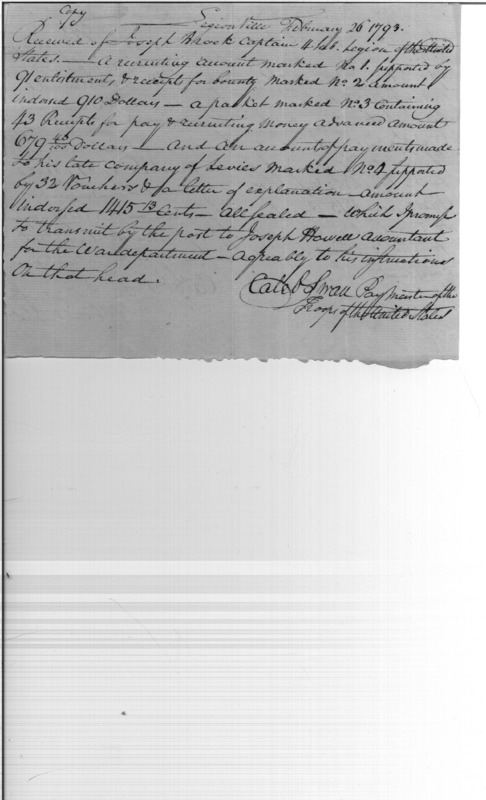 Copy
Legion Ville February 26 1793.
Received of Joseph Brock Captain 4 Sub. Legion of the United
States. — A recruiting account marked No 1. supported by
91 enlistments, & receipts for bounty marked No 2 amount
indorsed 910 Dollars — a packet marked No 3 Containing
43 Receipts for pay & recruiting money advanced amount
679 Dollars — And an account of payments made
to his late company of Levies marked No 4 supported
by 32 Vouchers & a letter of explanation — amount
indorsed 1415 13 Cents — All sealed — which I promise
to transmit by the post to Joseph Howell Accountant
for the War department — agreably to his instructions
on that head.
Caleb Swan Paymaster of the
Troops of the United States